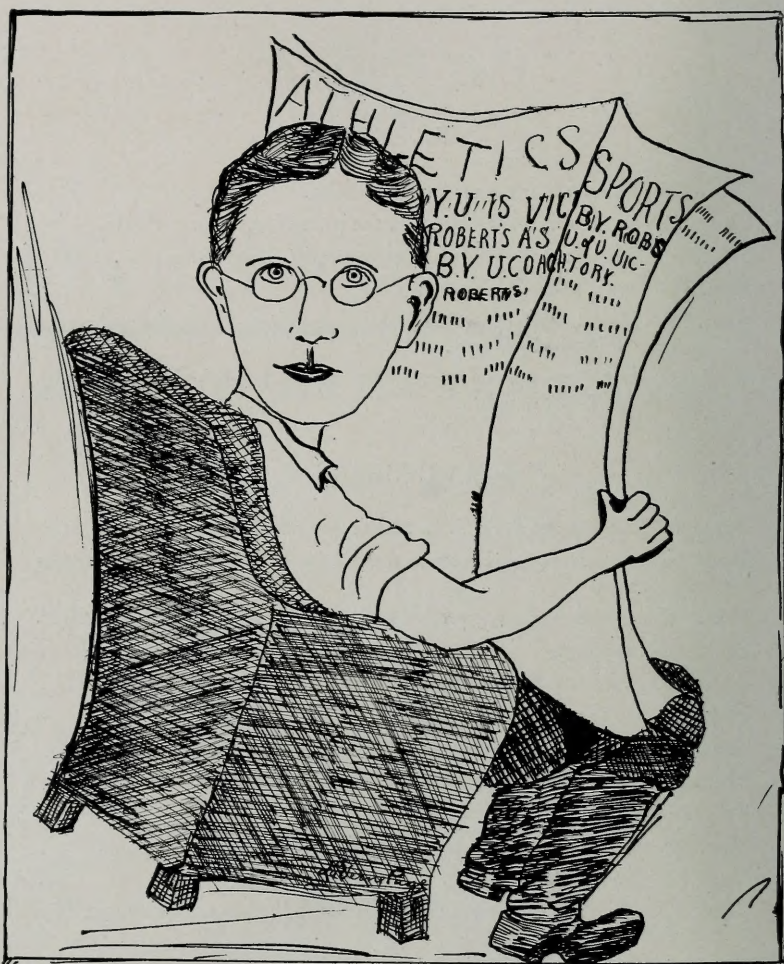 ATHLETICS
Y.U. IS VIC
ROBERTS AS
B.Y. U. COACH
ROBERTS.
SPORTS
B.Y. ROBS
U. of U. VIC-
TORY.